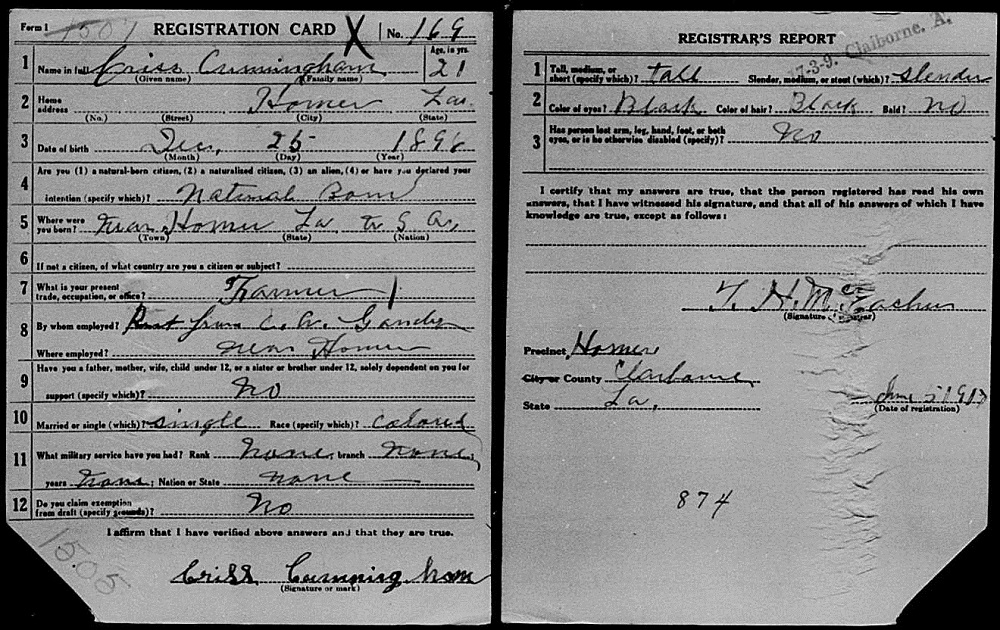 Form 1 1507 REGISTRATION CARD X No. 169
1 Name in full Criss Cunningham Age, in yrs. 21
(Given name) (Family name)
2 Home address Homer La.
(No.) (Street) (City) (State)
3 Date of birth Dec. 25 1896
(Month) (Day) (Year)
4 Are you (1) a natural-born citizen, (2) a naturalized citizen, (3) an alien, (4) or have you declared your
intention (specify which)? Natural Born
5 Where were you born? near Homer La U S A,
(Town) (State) (Nation)
6 If not a citizen, of what country are you a citizen or subject?
7 What is your present trade, occupation, or office? Farmer
8 By whom employed? Rent from C. W.
Where employed? near Homer
9 Have you a father, mother, wife, child under 12, or a sister or brother under 12, solely dependent on you for
support (specify which)? No
10 Married or single (which)? single Race (specify which)? Colored
11 What military service have you had? Rank none, branch none,
years none; Nation or State none
12 Do you claim exemption from draft (specify grounds)? No
I affirm that I have verified above answers and that they are true.
1505
Criss Cunningham
(Signature or mark)
17-3-9. Claiborne, A.
REGISTRAR'S REPORT
1 Tall, medium, or short (specify which)? tall Slender, medium, or stout (which)? slender
2 Color of eyes? Black Color of hair? Black Bald? No
3 Has person lost arm, leg, hand, foot, or both eyes, or is he otherwise disabled (specify)? No
I certify that my answers are true, that the person registered has read his own
answers, that I have witnessed his signature, and that all of his answers of which I have
knowledge are true, except as follows:
T. H. McEachern
(Signature of registrar)
Precinct Homer
City or County Claiborne
State La. June 5 1917
(Date of registration)
874